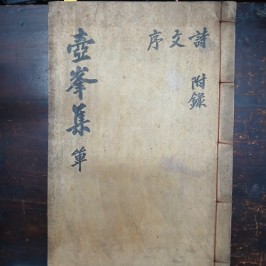 詩文序
附錄
壺峯集 單